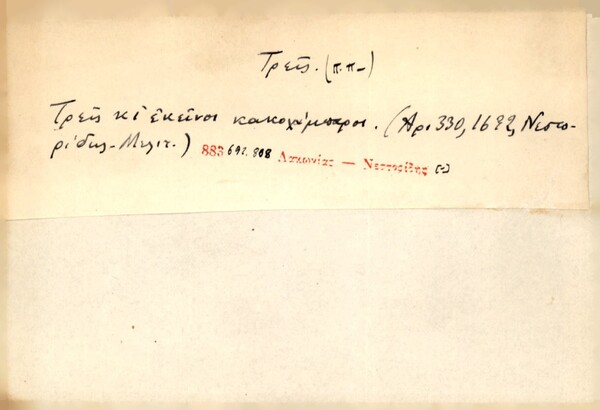 Τρεῖς. (π.π-)
Τρεῖς κι ἐκεῖνοι κακοχύμπυροι. (Αρι 330, 1692, Νεστο-
ρίδης-Μελιτ.) 883 692. 808 Λακωνίας — Νεστορίδης